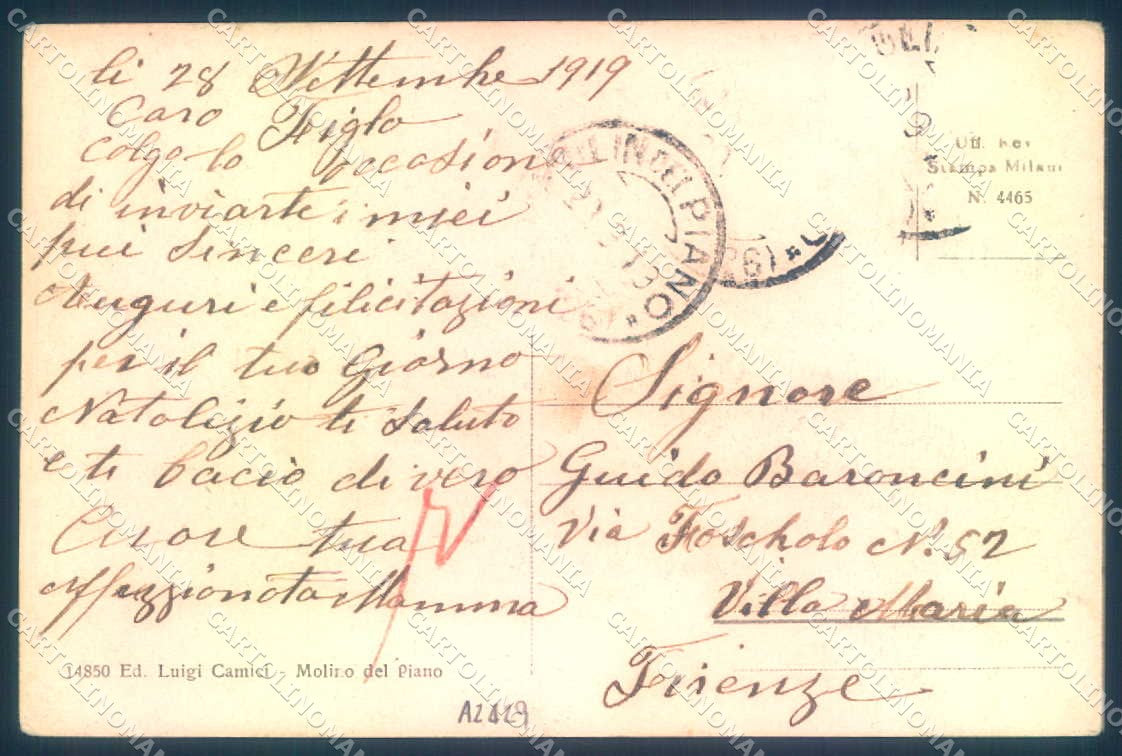 li 28 Settembre 1919
Caro Figlo
colgo la occasione
di inviarte i miei
piui sinceri
Auguri e filicitazioni
per il tuo Giorno
Natalizio ti saluto
e ti bacio di vero
Cuore tua
affezzionata Mamma
14850 Ed. Luigi Camici - Molino del Piano
A2429
MOLIN DEL PIANO
Uff. Rev
Stampa Milano
N. 4465
Signore
Guido Baroncini
Via Foscholo N. 52
Villa Maria
Firenze
CARTOLINOMANIA